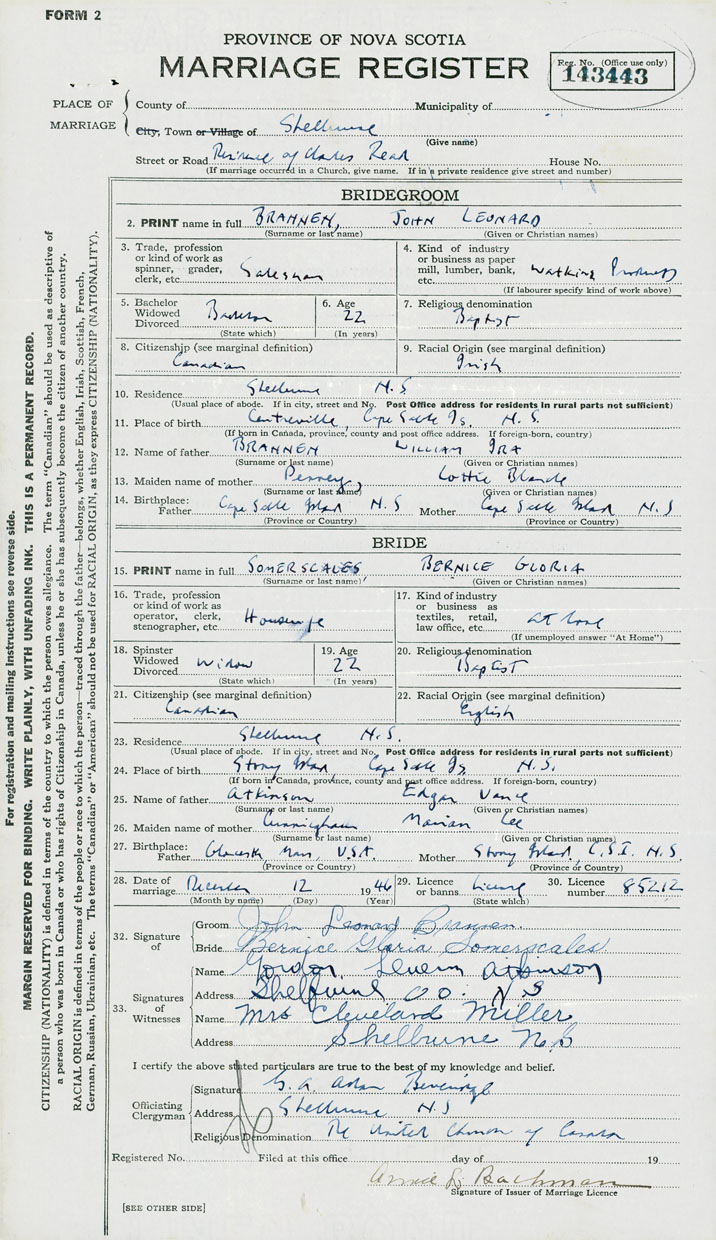 FORM 2
PROVINCE OF NOVA SCOTIA
MARRIAGE REGISTER
Reg. No. (Office use only)
143443
PLACE OF MARRIAGE
County of
Municipality of
City, Town or Village of Shelburne
(Give name)
Street or Road Residence of Read
House No.
(If marriage occurred in a Church, give name. If in a private residence give street and number)
BRIDEGROOM
2. PRINT name in full BRANNEN, JOHN LEONARD
(Surname or last name) (Given or Christian names)
3. Trade, profession or kind of work as spinner, grader, clerk, etc. Salesman
4. Kind of industry or business as paper mill, lumber, bank, etc. Watkins Products
(If labourer specify kind of work above)
5. Bachelor Widowed Divorced Bachelor
(State which)
6. Age 22
(In years)
7. Religious denomination
Baptist
8. Citizenship (see marginal definition)
Canadian
9. Racial Origin (see marginal definition)
Irish
10. Residence Shelburne N.S.
(Usual place of abode. If in city, street and No. Post Office address for residents in rural parts not sufficient)
11. Place of birth Centreville, Cape Sable Is. N.S.
(If born in Canada, province, county and post office address. If foreign-born, country)
12. Name of father BRANNEN WILLIAM IRA
(Surname or last name) (Given or Christian names)
13. Maiden name of mother Penney, Lottie Blande
(Surname or last name) (Given or Christian names)
14. Birthplace: Father Cape Sable Island N.S Mother Cape Sable Island N.S
(Province or Country) (Province or Country)
BRIDE
15. PRINT name in full SOMERSCALES, BERNICE GLORIA
(Surname or last name) (Given or Christian names)
16. Trade, profession or kind of work as operator, clerk, stenographer, etc. Housewife
17. Kind of industry or business as textiles, retail, law office, etc. at home
(If unemployed answer "At Home")
18. Spinster Widowed Divorced Widow
(State which)
19. Age 22
(In years)
20. Religious denomination
Baptist
21. Citizenship (see marginal definition)
Canadian
22. Racial Origin (see marginal definition)
English
23. Residence Shelburne N.S.
(Usual place of abode. If in city, street and No. Post Office address for residents in rural parts not sufficient)
24. Place of birth Stony Island, Cape Sable Is N.S.
(If born in Canada, province, county and post office address. If foreign-born, country)
25. Name of father Atkinson Edgar Vance
(Surname or last name) (Given or Christian names)
26. Maiden name of mother Cunningham Marian Lee
(Surname or last name) (Given or Christian names)
27. Birthplace: Father Gloucester Mass, U.S.A. Mother Stony Island, C.S.I. N.S.
(Province or Country) (Province or Country)
28. Date of marriage December 12 1946
(Month by name) (Day) (Year)
29. Licence or banns License
(State which)
30. Licence number 85212
32. Signature of
Groom John Leonard Brannen
Bride Bernice Gloria Somerscales
33. Signatures of Witnesses
Name Gordon Atkinson
Address Shelburne CO. N S
Name Mrs Cleveland Miller
Address Shelburne N.S
I certify the above stated particulars are true to the best of my knowledge and belief.
Officiating Clergyman
Signature G. A. Beveridge
Address Shelburne N.S
Religious Denomination The United Church of Canada
Registered No. Filed at this office day of 19
Annie L. Bachman
Signature of Issuer of Marriage Licence
[SEE OTHER SIDE]
For registration and mailing instructions see reverse side.
MARGIN RESERVED FOR BINDING. WRITE PLAINLY, WITH UNFADING INK. THIS IS A PERMANENT RECORD.
CITIZENSHIP (NATIONALITY) is defined in terms of the country to which the person owes allegiance. The term "Canadian" should be used as descriptive of
a person who was born in Canada or who has rights of Citizenship in Canada, unless he or she has subsequently become the citizen of another country.
RACIAL ORIGIN is defined in terms of the people or race to which the person—traced through the father—belongs, whether English, Irish, Scottish, French,
German, Russian, Ukrainian, etc. The terms "Canadian" or "American" should not be used for RACIAL ORIGIN, as they express CITIZENSHIP (NATIONALITY).